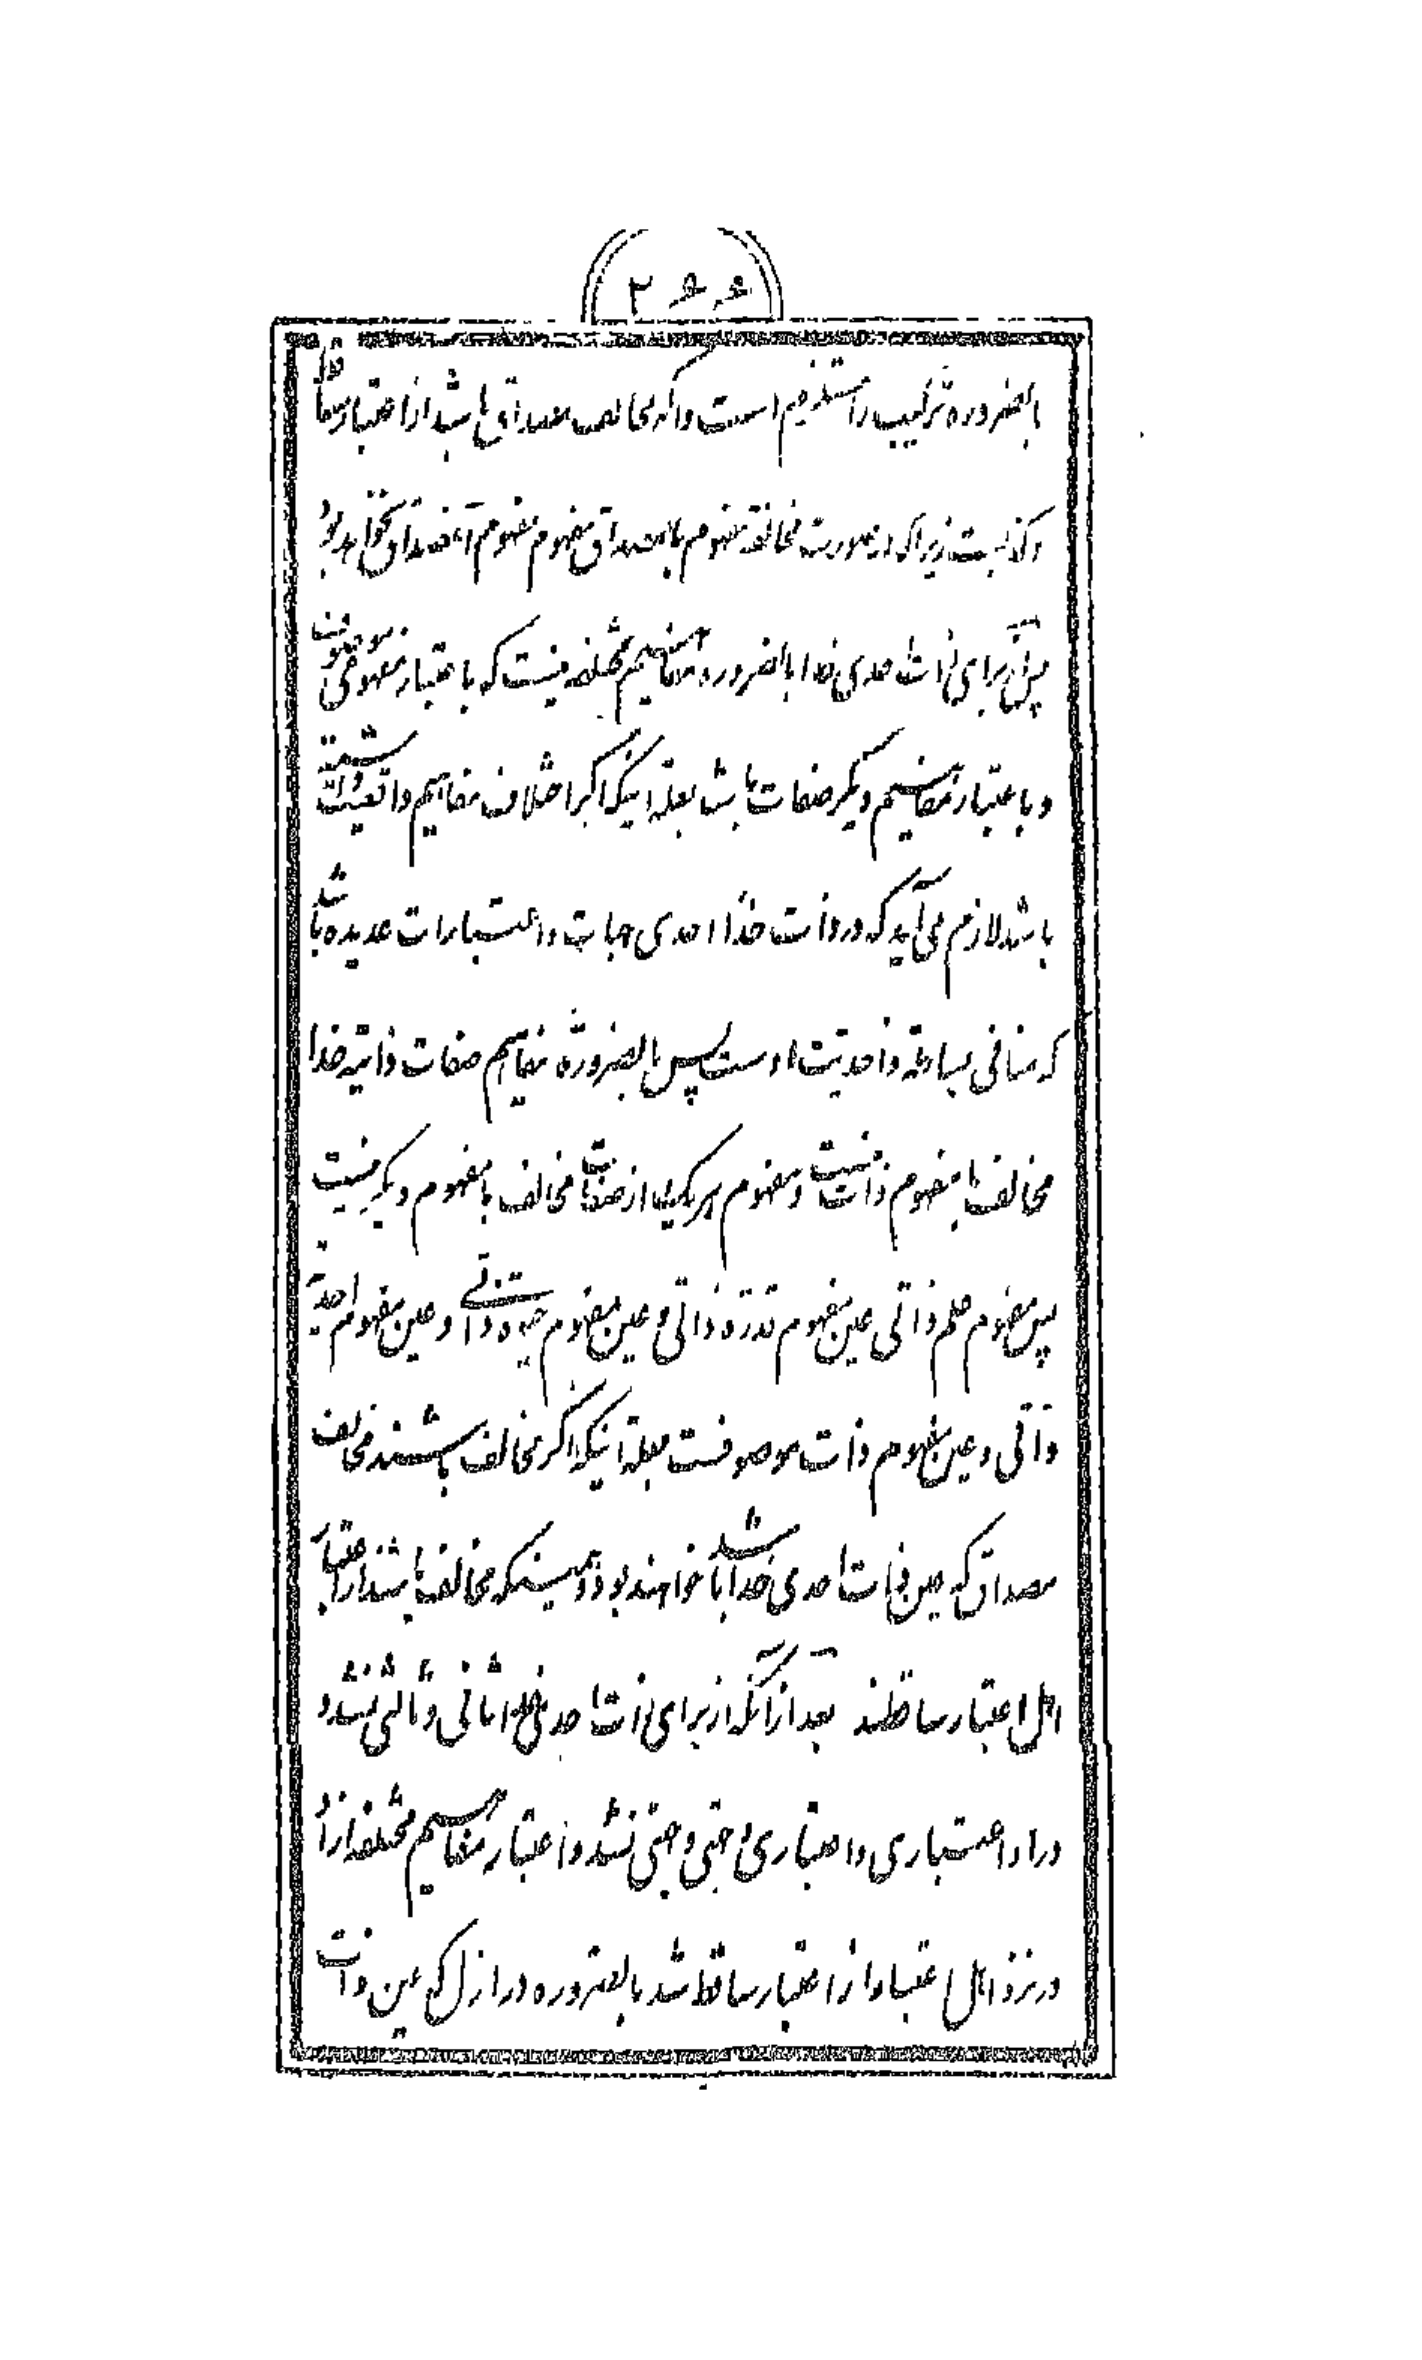 ۲۶۶
بالضروره ترکیب را مستلزم است واکر مخالف مصداق باشد از اعتبار ساقط
وکذبست زیرا که در صورت مخالفة مفهوم با مصداق مفهوم مفهوم آن مصداق نخواهد بود
پس از برای ذات احدی خدا بالضروره مفاهیم مختلفه نیست که باعتبار مفهومی موصوف
وباعتبار مفاهیم دیکر صفات باشد بعلة اینکه اکر اختلاف مفاهیم واقعیت داشته
باشد لازم می آید که در ذات خدا احدی جهات واعتبارات عدیده باشد
که منافی بساطة واحدیت اوست پس بالضروره مفاهیم صفات ذاتیه خدا
مخالف با مفهوم ذات نیست ومفهوم هر یکی از صفات مخالف با مفهوم دیکر نیست
پس مفهوم علم ذاتی عین مفهوم قدرة ذاتی وعین مفهوم حیوة ذاتی وعین مفهوم احدیة
ذاتی وعین مفهوم ذات موصوفست بعلة اینکه اکر مخالف باشند مخالف
مصداق که عین ذات احدی خدا باشد خواهند بود وهمینکه مخالف باشند از اعتبار
اهل اعتبار ساقطند بعد از آنکه از برای ذات احدی خدا ثانی وثالثی نشد و
در او اعتباری واعتباری وجهتی وجهتی نشد واعتبار مفاهیم مختلفه از او
در نزد اهل اعتبار از اعتبار ساقط شد بالضروره در ازل که عین ذات